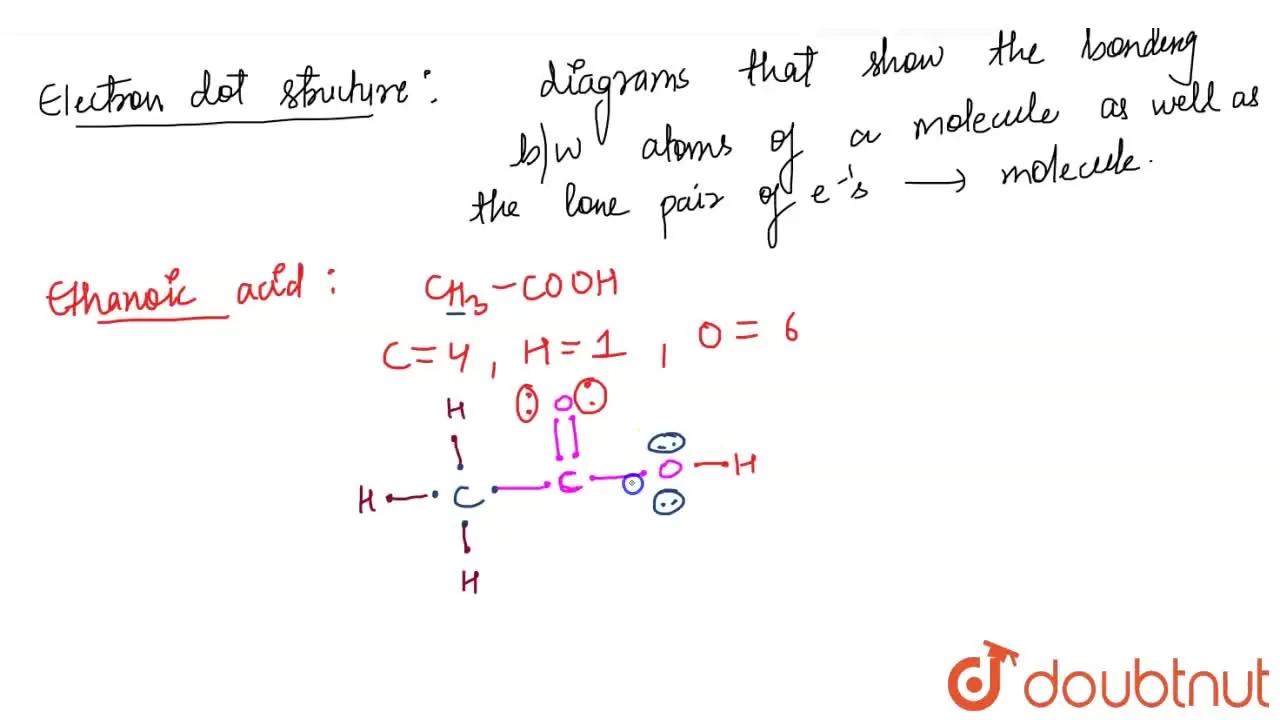 Electron dot structure: diagrams that show the bonding
b/w atoms of a molecule as well as
the lone pair of e⁻'s → molecule.
Ethanoic acid: CH3-COOH
C=4, H=1, O=6
H O
H C C O-H
H
doubtnut